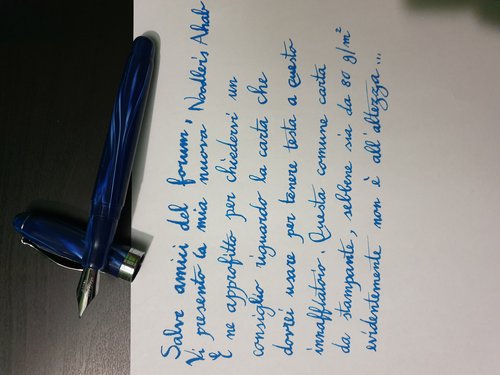 Salve amici del forum,
Vi presento la mia nuova Noodler's Ahab
E ne approfitto per chiedervi un
consiglio riguardo la carta che
dovrei usare per tenere testa a questo
innaffiatoio. Questa comune carta
da stampante, sebbene sia da 80 g/m²
evidentemente non è all'altezza...